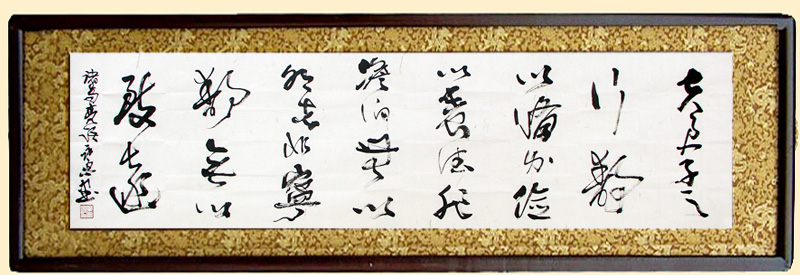 夫君子之
行靜
以脩身儉
以養德非
澹泊無以
明志非寧
靜無以
致遠
諸葛亮語